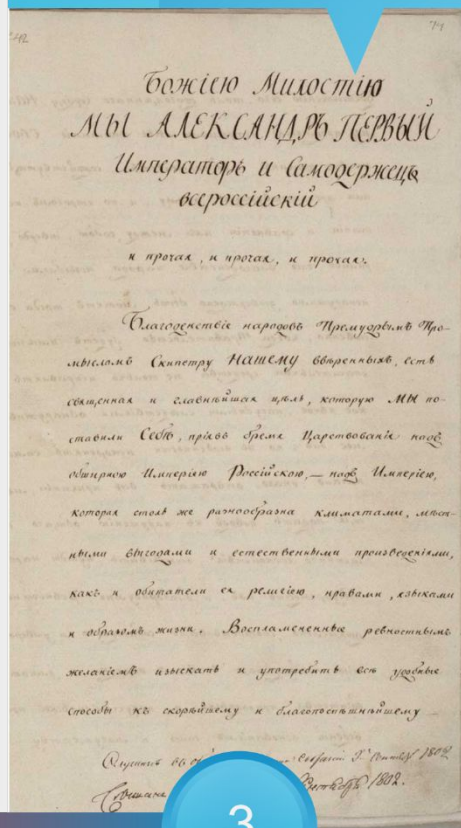 242
74
Божіею Милостію
МЫ АЛЕКСАНДРЪ ПЕРВЫЙ
Императоръ и Самодержецъ
всероссійскій
и прочая, и прочая, и прочая.
Благоденствіе народовъ Премудрымъ Про-
мысломъ Скипетру НАШЕМУ ввѣренныхъ, есть
священная и славнѣйшая цѣль, которую МЫ по-
ставили Себѣ, пріявъ бремя Царствованія надъ
обширною Имперіею Россійскою, — надъ Имперіею,
которая столь же разнообразна климатами, мѣст-
ными выгодами и естественными произведеніями,
какъ и обитатели ея религіею, нравами, языками
и образомъ жизни. Воспламененные ревностнымъ
желаніемъ изыскать и употребить всѣ удобные
способы къ скорѣйшему и благопоспѣшнѣйшему
1802
1802.
3